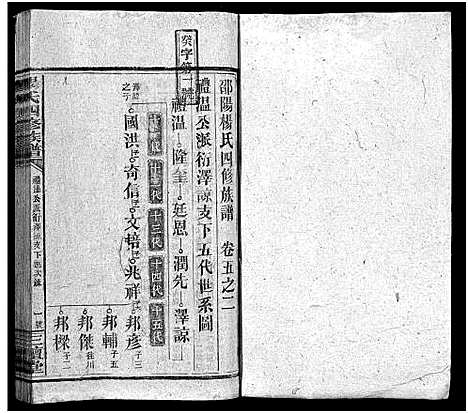 癸字第一號
邵陽楊氏四修族譜 卷五之二
禮溫公派衍澤諒支下五代世系圖
禮溫 隆奎 廷恩 潤先 澤諒
之子
十一代 十二代 十三代 十四代 十五代
國洪 奇信 文蓓 兆祥 邦彥 子三
邦輔 子五
邦傑 往川
邦樑 子二
楊氏四修族譜
禮溫公派衍澤諒支下世次錄
一號
三讀堂